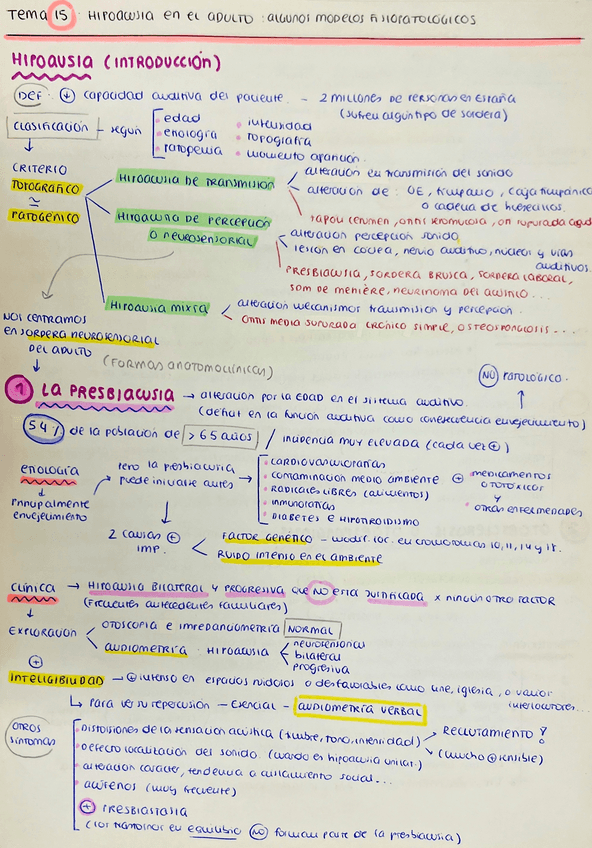 Tema 15 · HIPOACUSIA EN EL ADULTO: ALGUNOS MODELOS FISIOPATOLÓGICOS
HIPOACUSIA (INTRODUCCIÓN)
DEF. ↓ capacidad auditiva del paciente. - 2 MILLONES DE PERSONAS EN ESPAÑA
(sufren algún tipo de sordera)
CLASIFICACIÓN - según
• edad • intensidad
• etiología • topografía
• patogenia • momento aparición.
CRITERIO
TOPOGRÁFICO
≃
PATOGÉNICO
HIPOACUSIA DE TRANSMISIÓN
alteración en transmisión del sonido
alteración de: OE, tímpano, caja timpánica
o cadena de huesecillos.
TAPÓN CERUMEN, OTITIS SEROMUCOSA, OM supurada aguda
HIPOACUSIA DE PERCEPCIÓN
O NEUROSENSORIAL
alteración percepción sonido
lesión en cóclea, nervio auditivo, núcleos y vías
auditivas.
PRESBIACUSIA, SORDERA BRUSCA, SORDERA LABORAL,
SDM DE MENIÈRE, NEURINOMA DEL ACÚSTICO...
HIPOACUSIA MIXTA
alteración mecanismos transmisión y percepción.
OTITIS MEDIA SUPURADA CRÓNICA SIMPLE, OTOSPONGIOSIS...
NOS CENTRAMOS
EN SORDERA NEUROSENSORIAL
DEL ADULTO
(FORMAS ANATOMOCLÍNICAS)
NO PATOLÓGICO.
1 LA PRESBIACUSIA → alteración por la EDAD en el sistema auditivo.
(déficit en la función auditiva como consecuencia envejecimiento)
54% de la población de > 65 años / incidencia muy elevada (cada vez ⊕)
ETIOLOGÍA
↓
Principalmente
envejecimiento
pero la presbiacusia
puede iniciarse antes
• CARDIOVASCULOPATÍAS
• CONTAMINACIÓN MEDIO AMBIENTE
• RADICALES LIBRES (alimentos)
• INMUNOPATÍAS
• DIABETES E HIPOTIROIDISMO
⊕ medicamentos
ototóxicos
y
otras enfermedades
2 causas ⊕
imp.
FACTOR GENÉTICO - modif. loc. en cromosomas 10, 11, 14 y 18.
RUIDO INTENSO EN EL AMBIENTE
CLÍNICA → HIPOACUSIA BILATERAL Y PROGRESIVA que NO está JUSTIFICADA x NINGÚN OTRO FACTOR
(Frecuentes antecedentes familiares)
EXPLORACIÓN
OTOSCOPIA E IMPEDANCIOMETRÍA NORMAL
AUDIOMETRÍA · HIPOACUSIA
neurosensorial
bilateral
progresiva
⊕
INTELIGIBILIDAD → ⊕ intenso en espacios ruidosos o desfavorables como cine, iglesia, o varios
interlocutores...
↳ Para ver su repercusión - Esencial - AUDIOMETRÍA VERBAL
OTROS
SÍNTOMAS
• Distorsiones de la sensación acústica (timbre, tono, intensidad)
RECLUTAMIENTO !
(mucho ⊕ sensible)
• Defecto localización del sonido. (cuando es hipoacusia unilat.)
• alteración carácter, tendencia a aislamiento social...
• acúfenos (muy frecuente)
⊕ PRESBIASTASIA
(los trastornos en equilibrio NO forman parte de la presbiacusia)